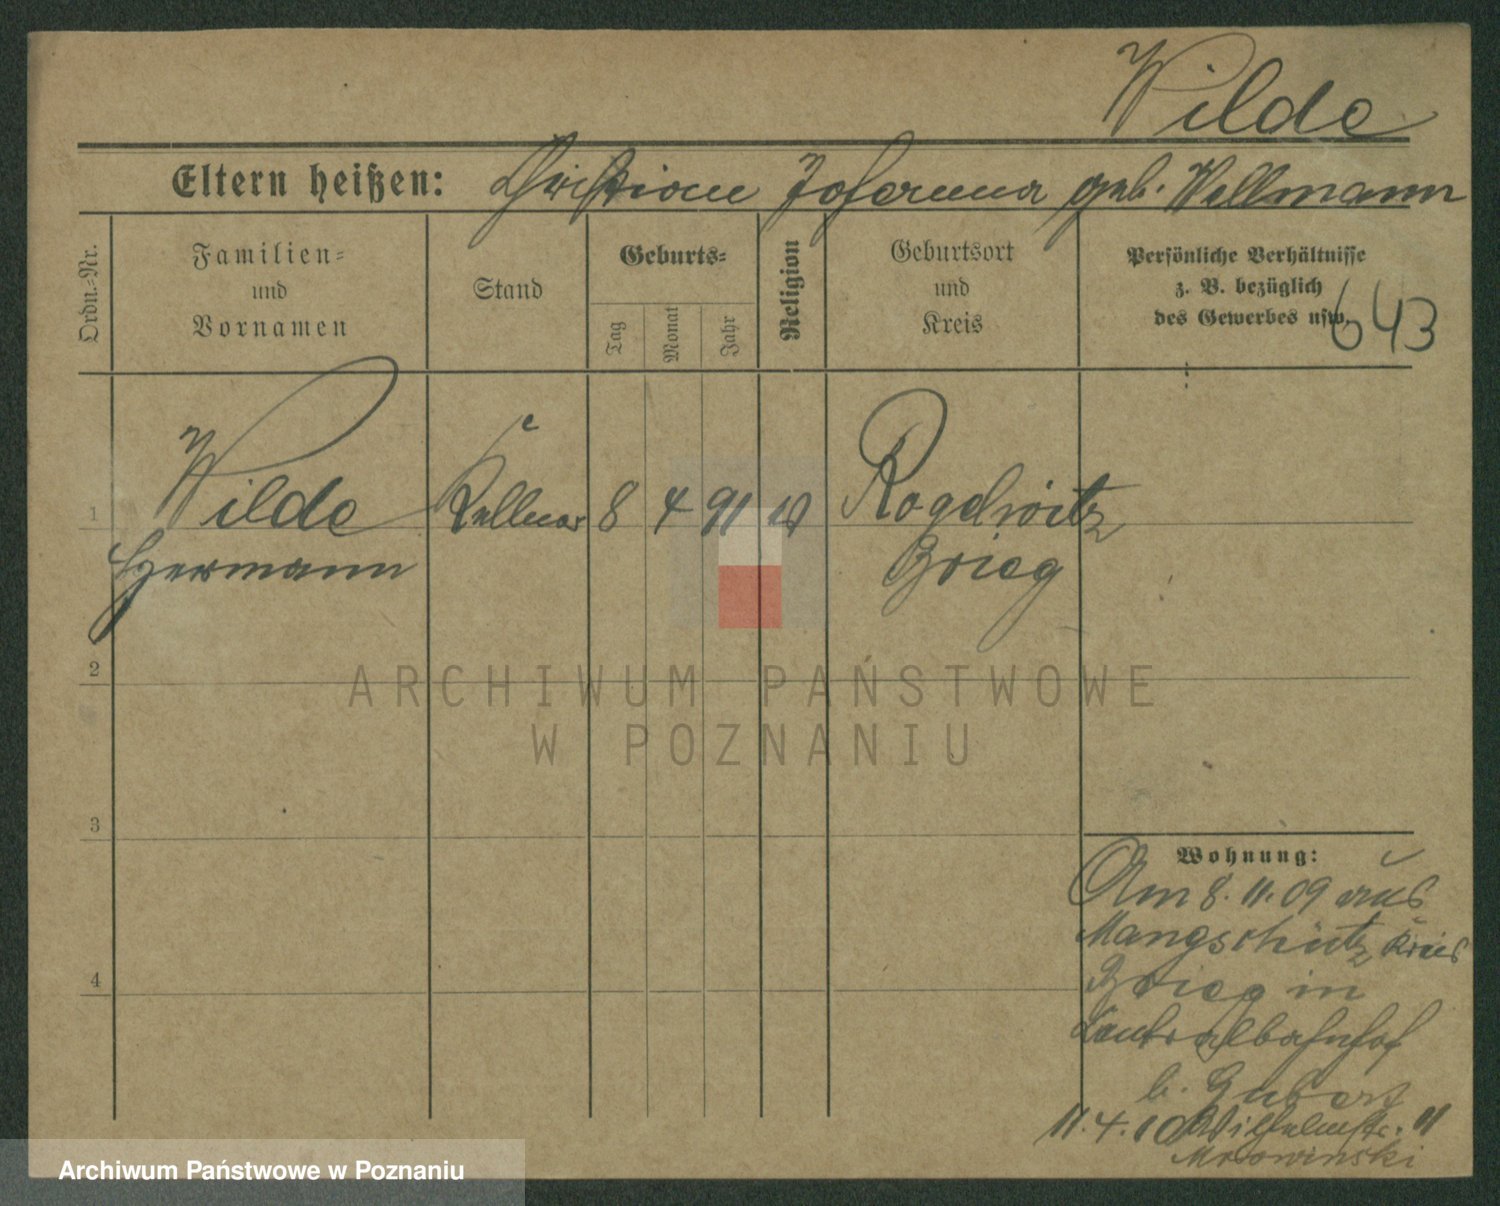 Wilde
Eltern heißen: Christiane Johanna geb. Wellmann
Ordn.-Nr.
Familien-
und
Vornamen
Stand
Geburts-
Tag
Monat
Jahr
Religion
Geburtsort
und
Kreis
Persönliche Verhältnisse
z. B. bezüglich
des Gewerbes usw.
643
1
Wilde
Hermann
Kellner
8 4 91
Rogelwitz
Brieg
2
ARCHIWUM PAŃSTWOWE
W POZNANIU
3
4
Wohnung:
Am 8. 11. 09 aus
Mangschütz Kreis
Brieg in
Centralbahnhof
b.
11. 4. 10 Wilhelmstr. 11
Mrowinski
Archiwum Państwowe w Poznaniu